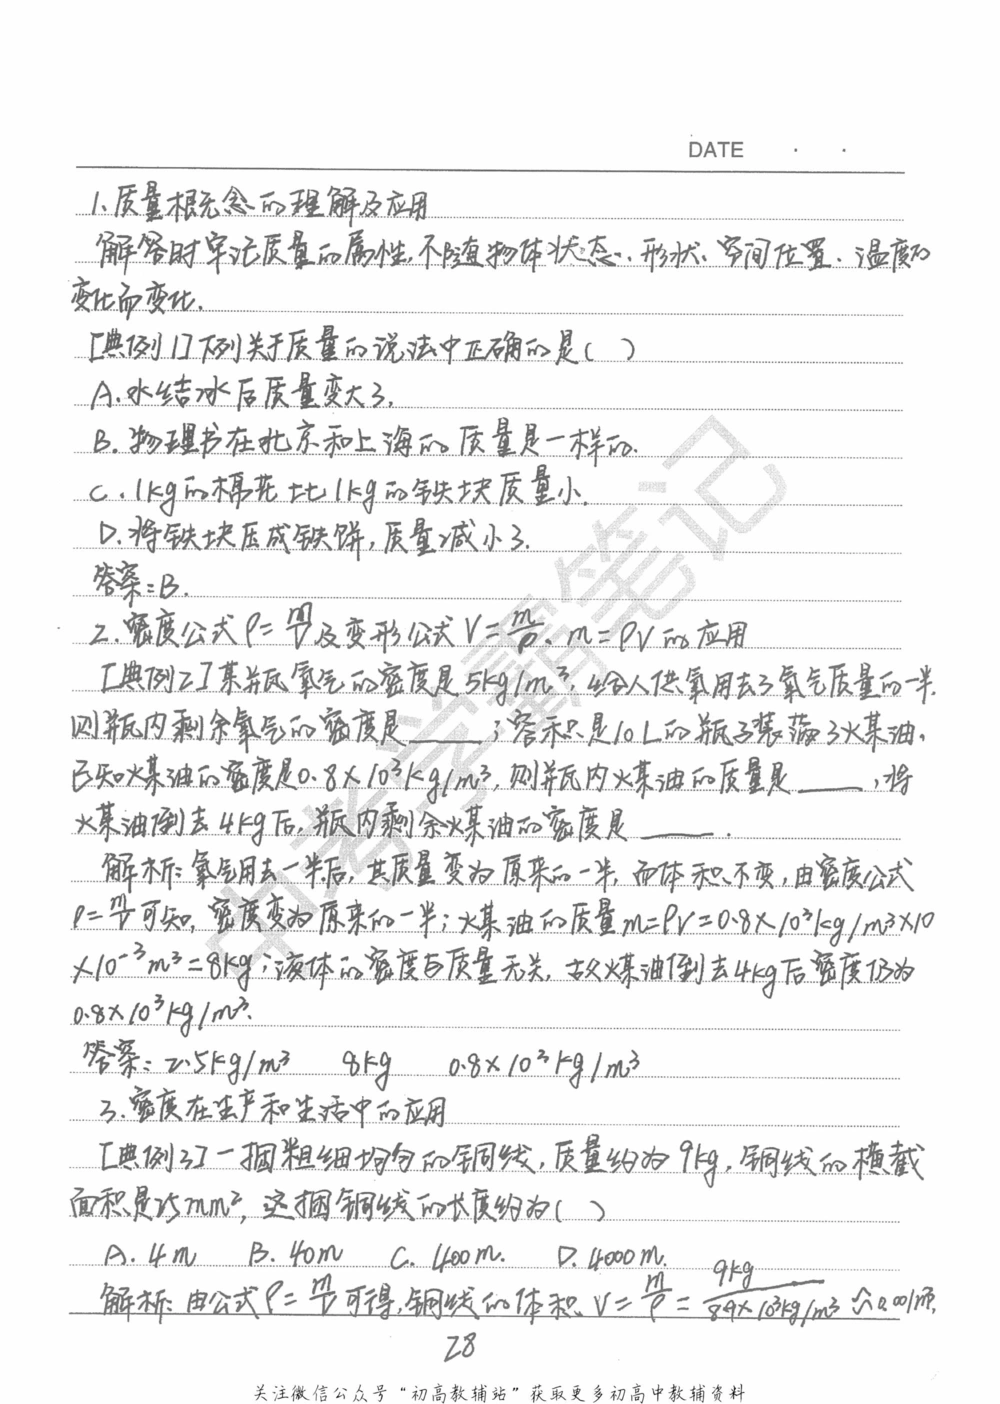 DATE · ·
1.质量概念的理解及应用
解答时牢记质量的属性,不随物体状态、形状、空间位置、温度的
变化而变化.
[典例1]下列关于质量的说法中正确的是( )
A.水结冰后质量变大了.
B.物理书在北京和上海的质量是一样的.
C.1kg的棉花比1kg的铁块质量小.
D.将铁块压成铁饼,质量减小了.
答案:B.
2.密度公式ρ=m/V及变形公式V=m/ρ、m=ρV的应用
[典例2]某瓶氧气的密度是5kg/m³,给人供氧用去了氧气质量的一半,
则瓶内剩余氧气的密度是____;容积是10L的瓶子装满了火某油,
已知火某油的密度是0.8×10³kg/m³,则瓶内火某油的质量是____,将
火某油倒去4kg后,瓶内剩余火某油的密度是____.
解析:氧气用去一半后,其质量变为原来的一半,而体积不变,由密度公式
ρ=m/V可知,密度变为原来的一半;火某油的质量m=ρV=0.8×10³kg/m³×10
×10⁻³m³=8kg;液体的密度与质量无关,故火某油倒去4kg后密度仍为
0.8×10³kg/m³.
答案:2.5kg/m³ 8kg 0.8×10³kg/m³
3.密度在生产和生活中的应用
[典例3]一捆粗细均匀的铜线,质量约为9kg,铜线的横截
面积是25mm²,这捆铜线的长度约为( )
A.4m B.40m C.400m. D.4000m.
解析:由公式ρ=m/V可得,铜线的体积V=m/ρ=9kg/8.9×10³kg/m³≈0.001m³,
28
中考学霸笔记
关注微信公众号“初高教辅站”获取更多初高中教辅资料